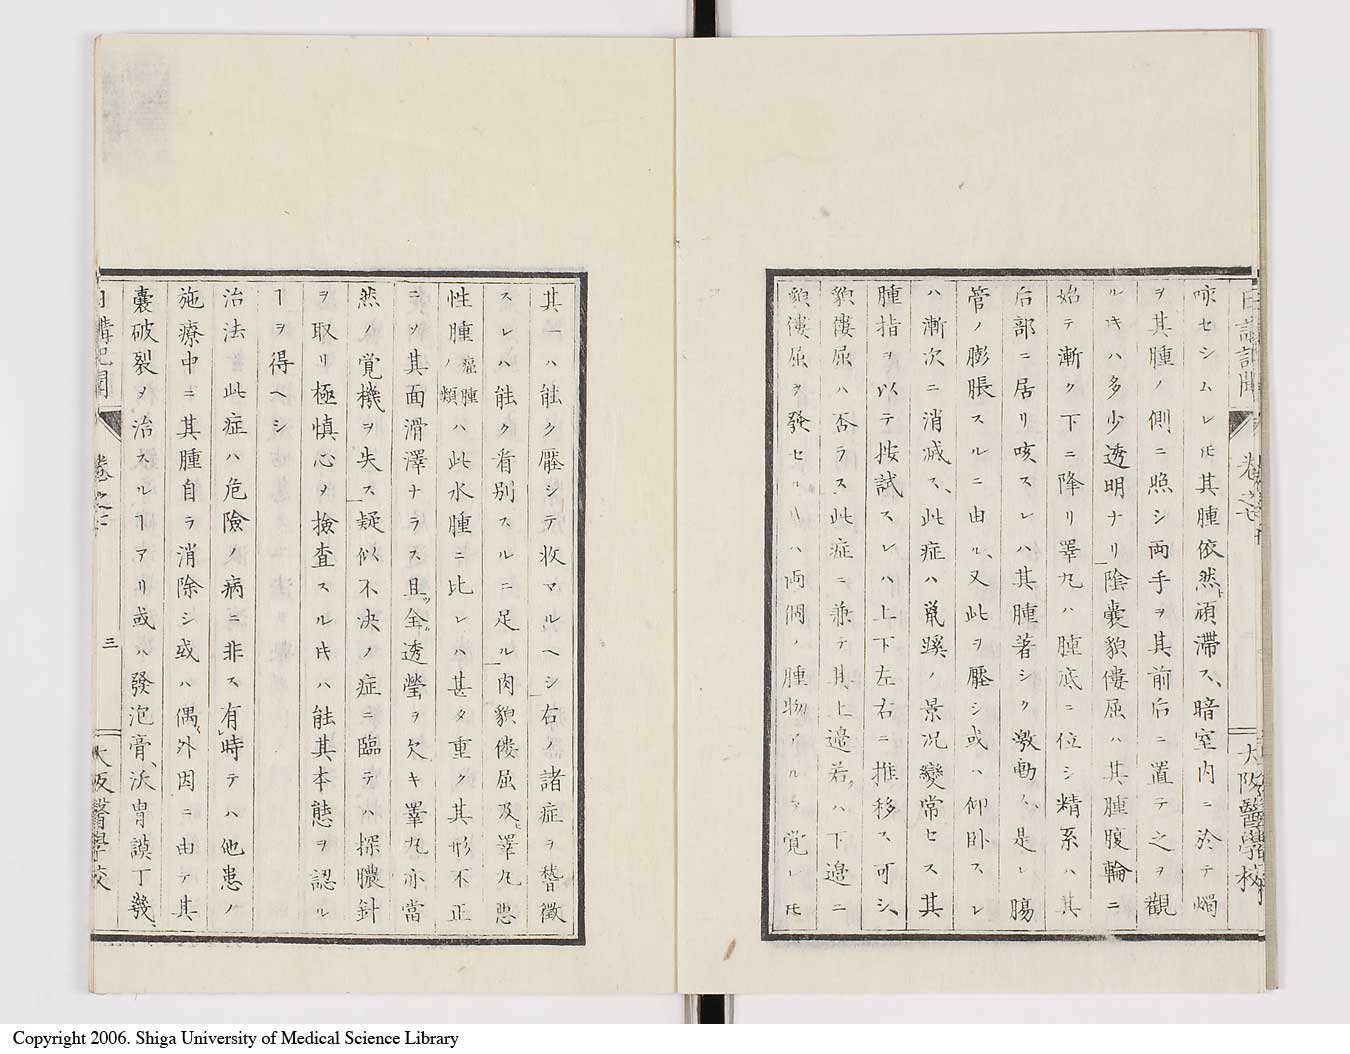 日講記聞
卷之七
大阪醫學校
咳セシムレ𪜈其腫依然頑滯ス、暗室内ニ於テ燭
ヲ其腫ノ側ニ照シ両手ヲ其前后ニ置テ之ヲ觀
ルキハ多少透明ナリ陰嚢貌僂屈ハ其腫腹輪ニ
始テ漸ク下ニ降リ睪丸ハ腫底ニ位シ精系ハ其
后部ニ居リ咳スレハ其腫著シク激動ス、是レ腸
管ノ膨脹スルニ由ル、又此ヲ壓シ或ハ仰卧スレ
ハ漸次ニ消滅ス、此症ハ鼠蹊ノ景况變常セス其
腫指ヲ以テ按試スレハ上下左右ニ推移ス可シ、
貌僂屈ハ否ラス此症ニ兼テ其上邉若ハ下邉ニ
貌僂屈ヲ發セルハ両個ノ腫物アルヲ覚レ𪜈
其一ハ能ク壓シテ收マルヘシ右ノ諸症ヲ
スレハ能ク看別スルニ足ル肉貌僂屈及睪丸惡
性腫ノ瘟腫類ハ此水腫ニ比レハ甚タ重ク其形不正
ニソ其面滑澤ナラス且全透瑩ヲ欠キ睪丸亦當
然ノ覚機ヲ失ス疑似不决ノ症ニ臨テハ探膿針
ヲ取リ極慎心ヲ撿査スルキハ能其本態ヲ認ル
ヿヲ得ヘシ
治法此症ハ危險ノ病ニ非ス有時テハ他患ノ
施療中ニ其腫自ラ消除シ或ハ偶外因ニ由テ其
嚢破裂ヲ治スルヿアリ或ハ發泡膏、沃胄謨丁幾、
日講記聞
卷之七
三
大阪醫學校
Copyright 2006. Shiga University of Medical Science Library